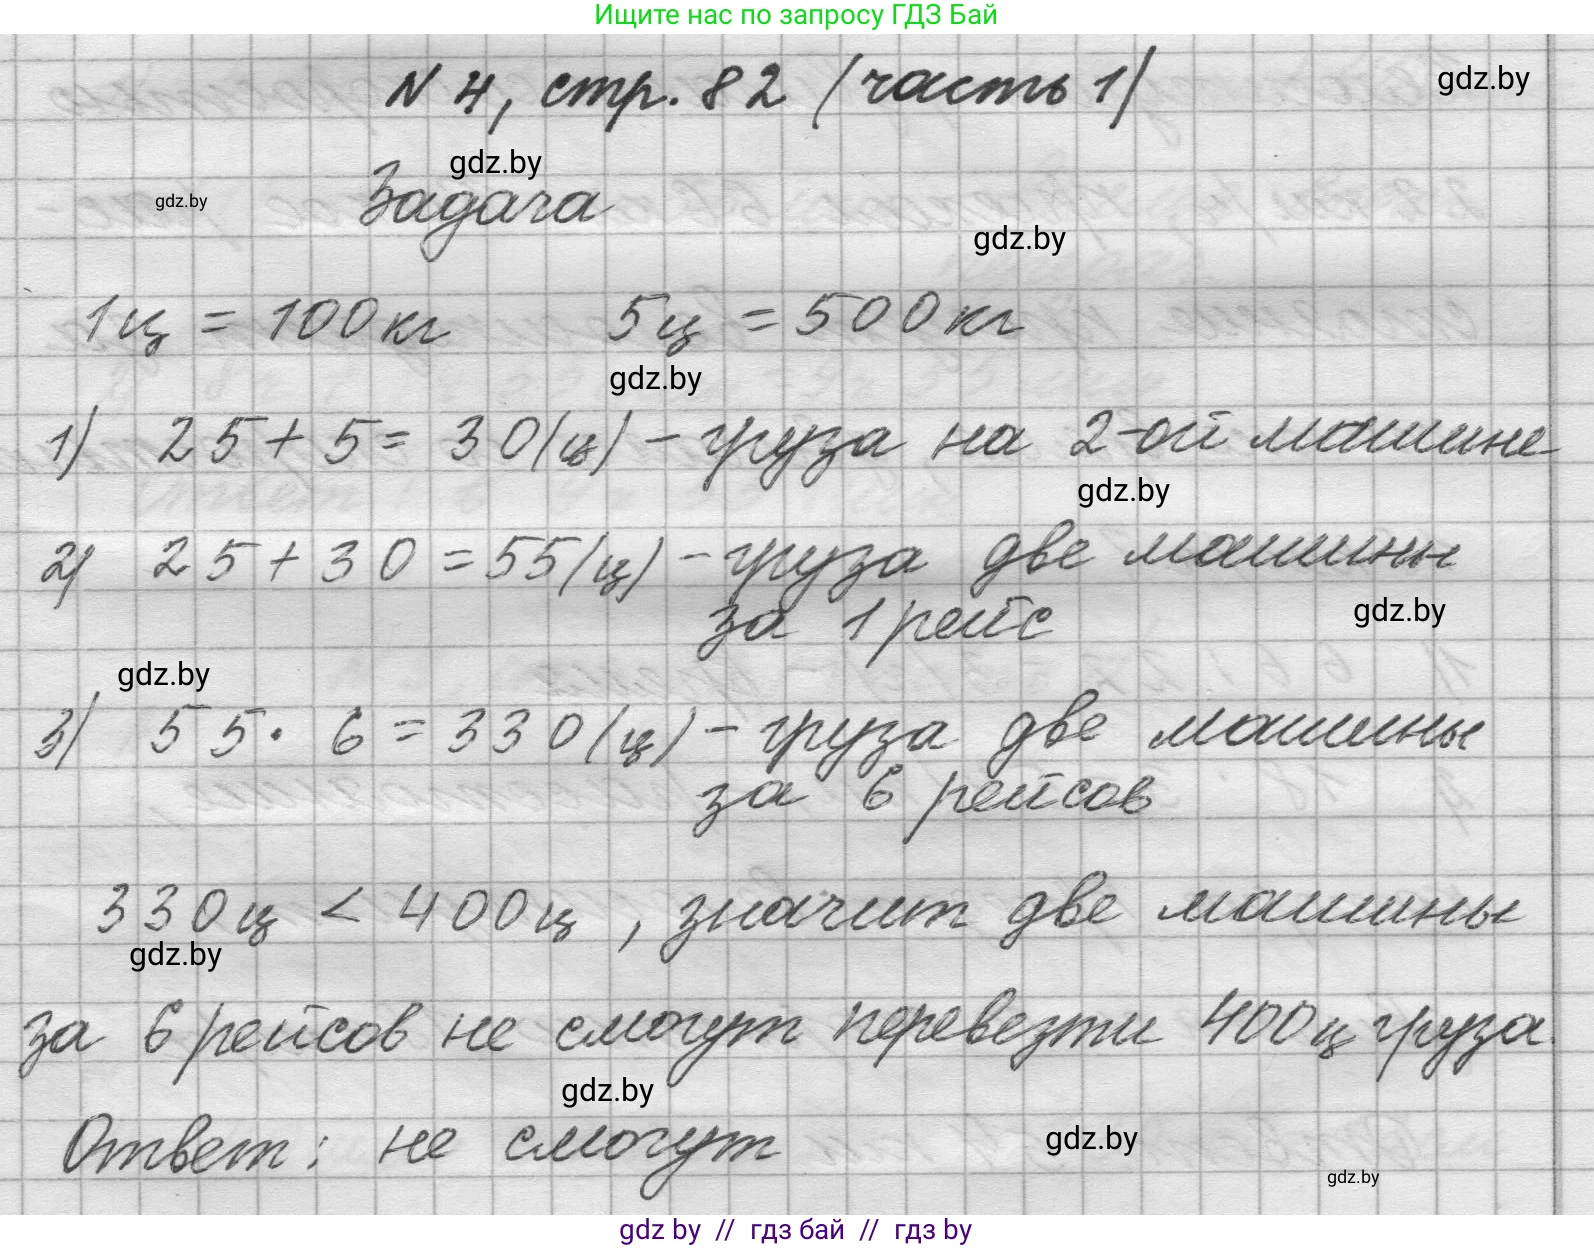 Ищите нас по запросу ГДЗ Бай
N 4, стр. 82 (часть 1)
gdz.by
gdz.by
gdz.by
Задача
gdz.by
1ц = 100кг 5ц = 500кг
gdz.by
1) 25 + 5 = 30(ц) - груза на 2-ой машине
gdz.by
2) 25 + 30 = 55(ц) - груза две машины
за 1 рейс
gdz.by
gdz.by
3) 55 · 6 = 330(ц) - груза две машины
за 6 рейсов
330ц < 400ц, значит две машины
gdz.by
за 6 рейсов не смогут перевезти 400ц груза.
gdz.by
Ответ: не смогут
gdz.by
gdz.by
gdz by // гдз бай // гдз by